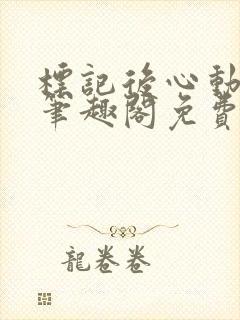 標記後心動
筆趣閣免費
龍卷卷